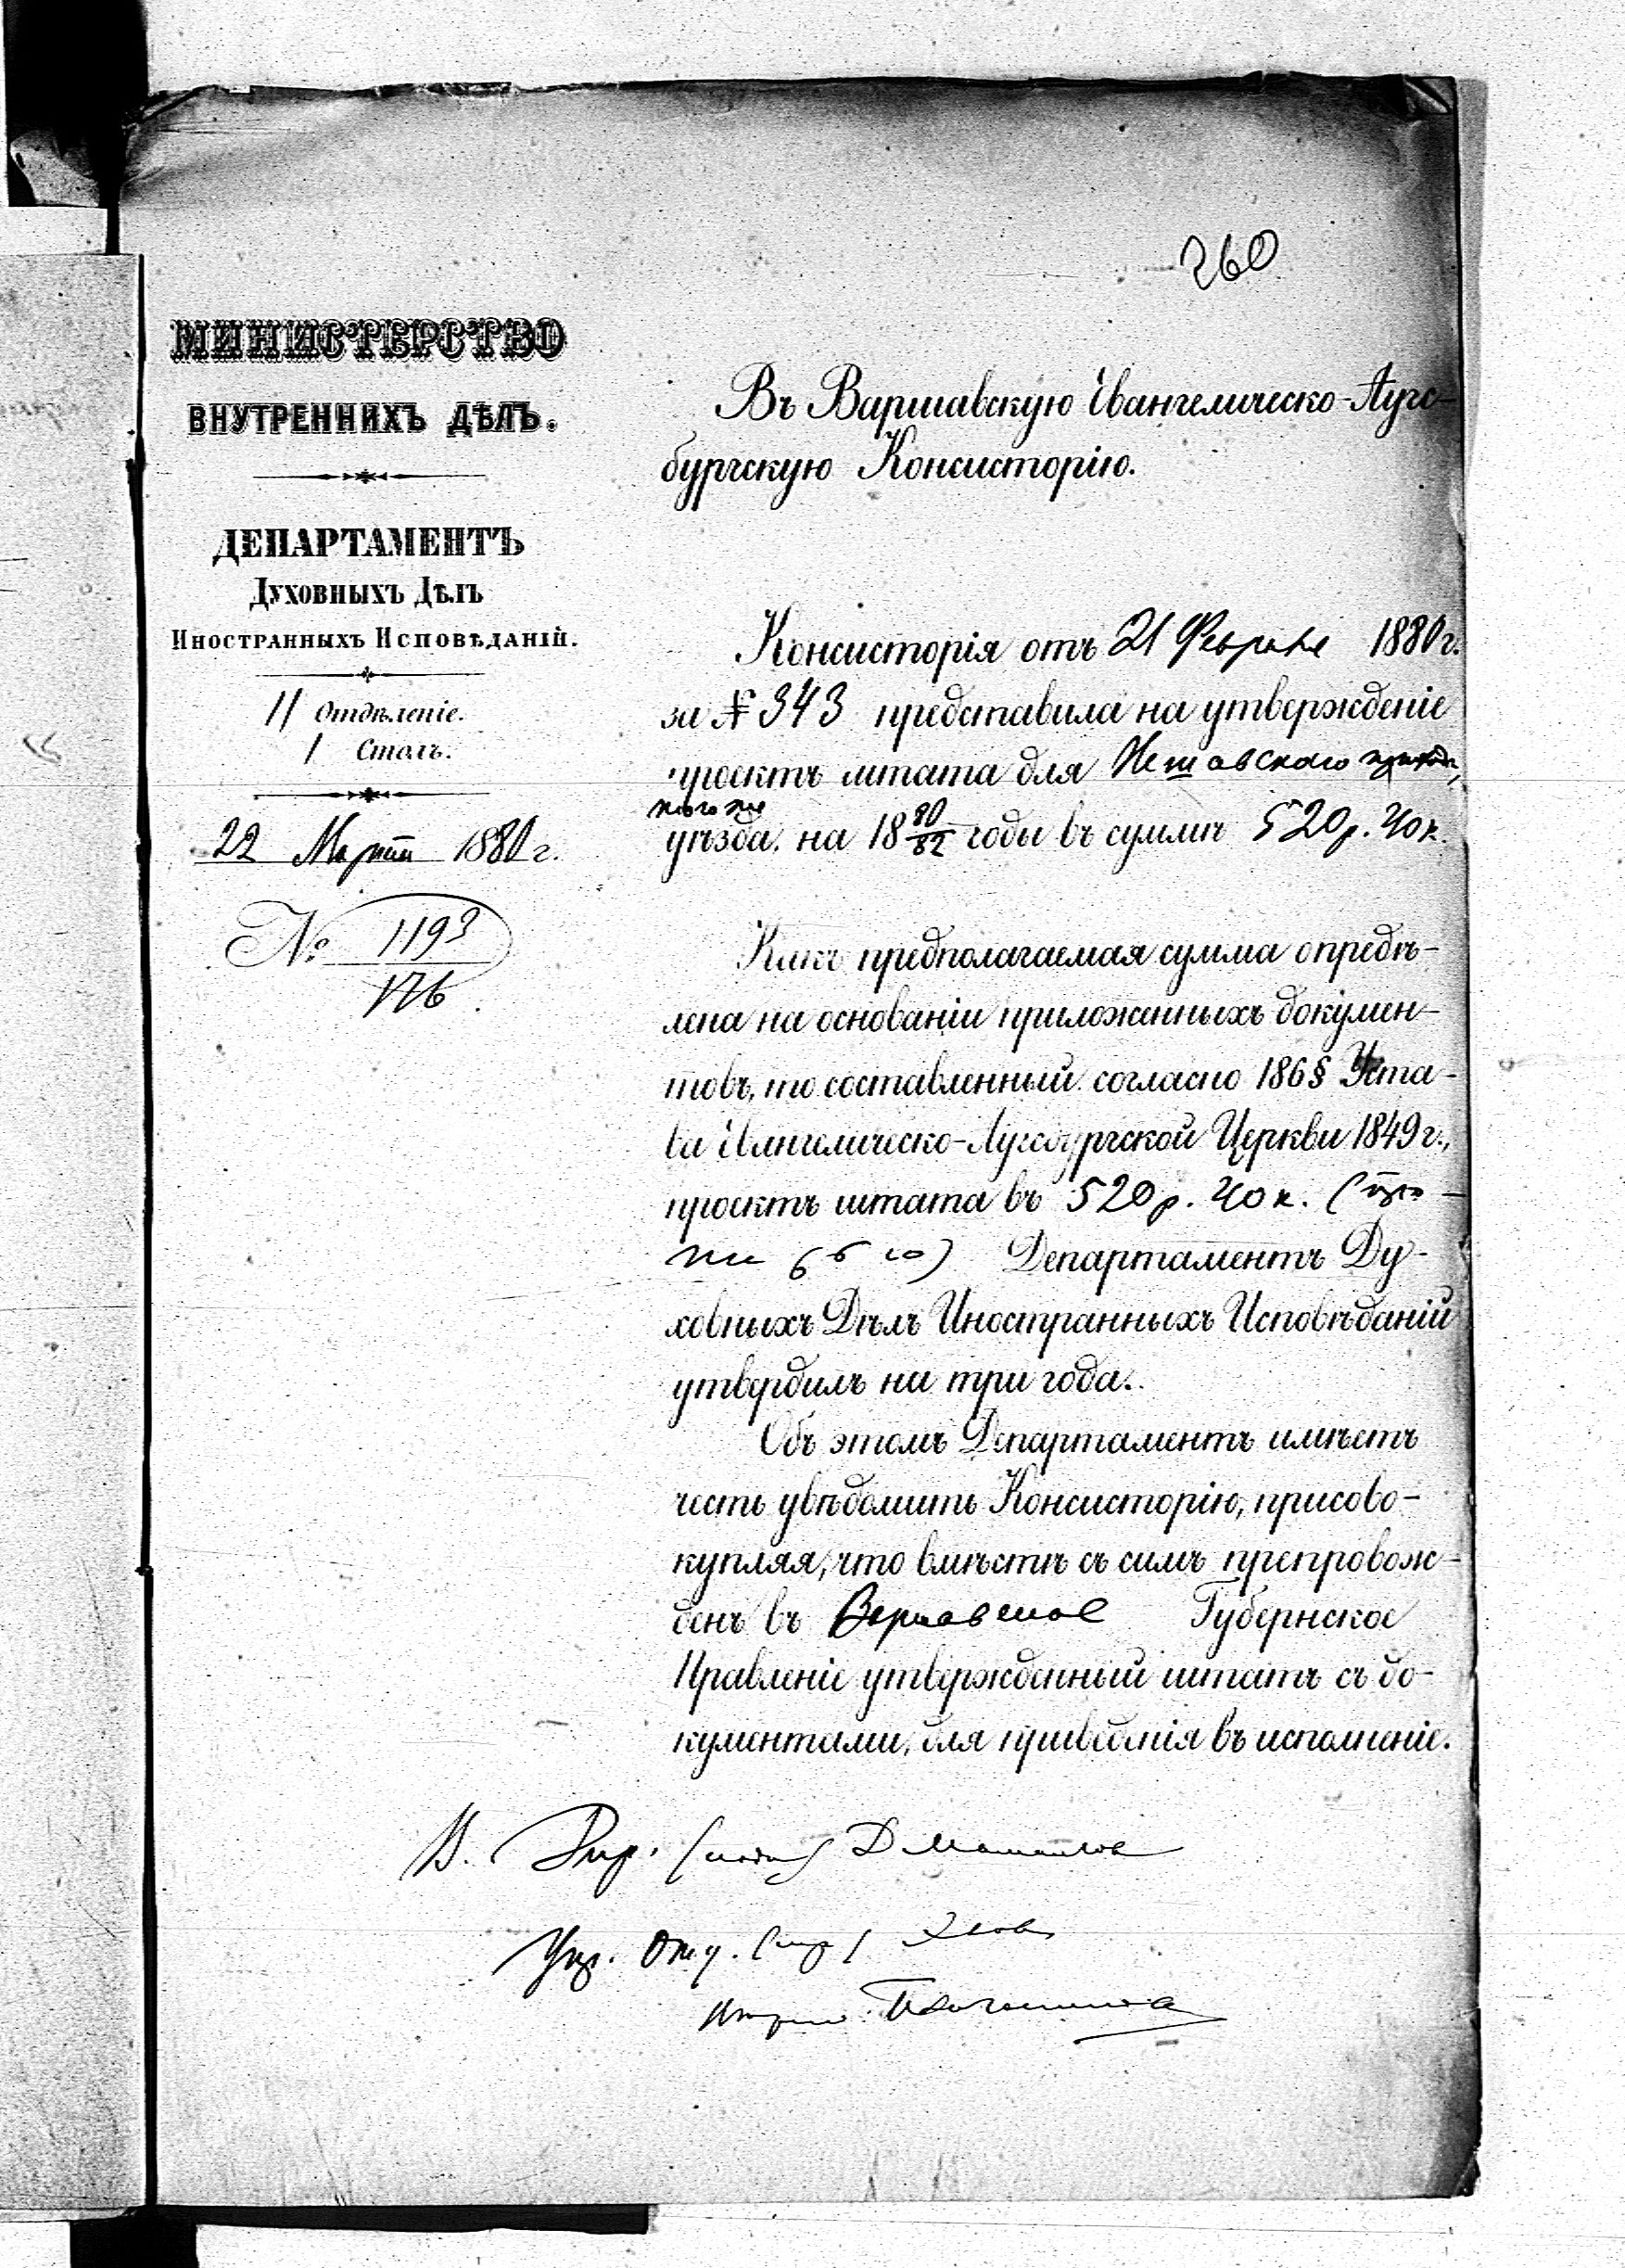 260
МИНИСТЕРСТВО
ВНУТРЕННИХЪ ДѢЛЪ.
ДЕПАРТАМЕНТЪ
ДУХОВНЫХЪ ДѢЛЪ
ИНОСТРАННЫХЪ ИСПОВѢДАНІЙ.
II Отдѣленіе.
1 Столъ.
22 Марта 1880 г.
№ 1193
176
Въ Варшавскую Евангелическо-Аугс-
бургскую Консисторію.
Консисторія отъ 21 Февраля 1880 г.
за № 343 представила на утвержденіе
проектъ штата для Нешавского прихода,
того же
уѣзда, на 18 80/82 годы въ суммѣ 520 р. 40 к.
Какъ предполагаемая сумма опредѣ-
лена на основаніи приложенныхъ докумен-
товъ, то составленный согласно 186 § Уста-
ва Евангелическо-Аугсбургской Церкви 1849 г.,
проектъ штата въ 520 р. 40 к.
Департаментъ Ду-
ховныхъ Дѣлъ Иностранныхъ Исповѣданій
утвердилъ на три года.
Объ этомъ Департаментъ имѣетъ
честь увѣдомить Консисторію, присово-
купляя, что вмѣстѣ съ симъ препровож-
денъ въ Варшавское Губернское
Правленіе утвержденный штатъ съ до-
кументами, для приведенія въ исполненіе.
В. Дир.
Упр. Отд.